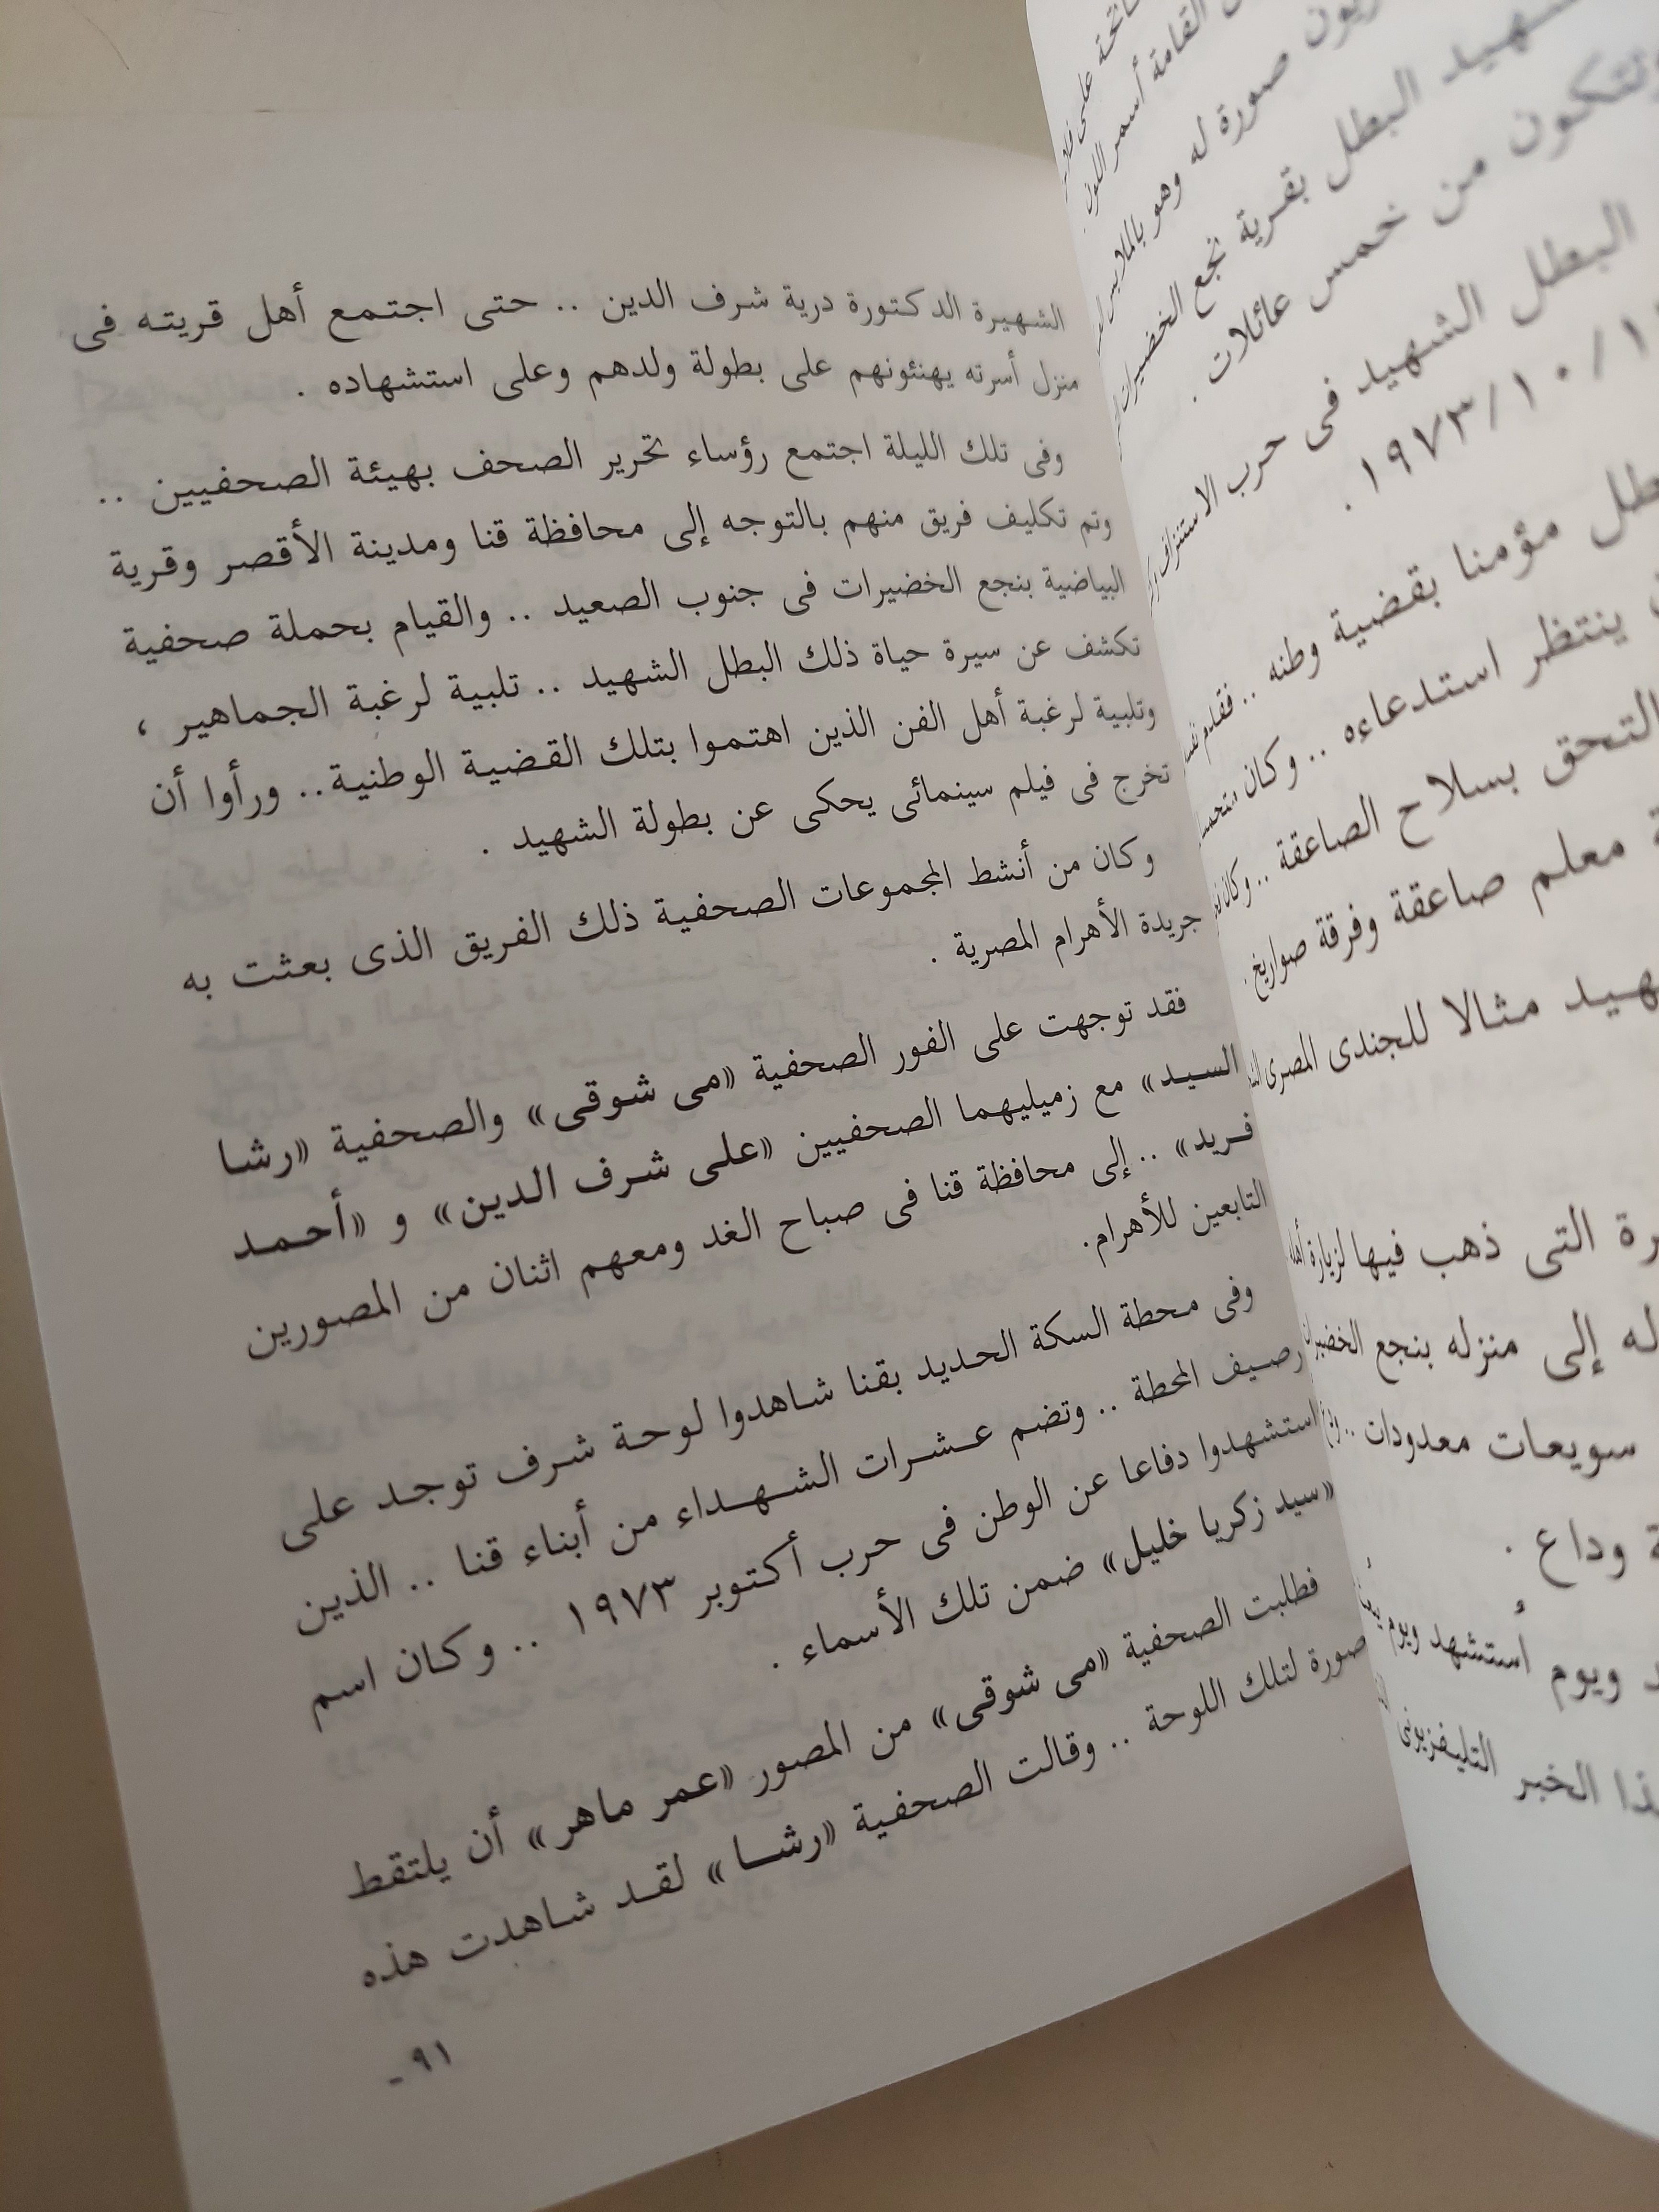 القامة أسمر اللون
صورة له وهو بالملابس
البطل بقرية نجع الخضيرات
وتتكون من خمس عائلات .
البطل الشهيد فى حرب الاستنزاف
١٩٧٣/١٠/
مؤمنا بقضية وطنه .. فقدم
ينتظر استدعاءه .. وكان
التحق بسلاح الصاعقة .. وكان
معلم صاعقة وفرقة صواريخ
مثالا للجندى المصرى
التى ذهب فيها لزيارة أهله
إلى منزله بنجع الخضيرات
سويعات معدودات ..
وداع .
ويوم أستشهد ويوم
الخبر التليفزيونى
الشهيرة الدكتورة درية شرف الدين .. حتى اجتمع أهل قريته فى
منزل أسرته يهنئونهم على بطولة ولدهم وعلى استشهاده .
وفى تلك الليلة اجتمع رؤساء تحرير الصحف بهيئة الصحفيين ..
وتم تكليف فريق منهم بالتوجه إلى محافظة قنا ومدينة الأقصر وقرية
البياضية بنجع الخضيرات فى جنوب الصعيد .. والقيام بحملة صحفية
تكشف عن سيرة حياة ذلك البطل الشهيد .. تلبية لرغبة الجماهير ،
وتلبية لرغبة أهل الفن الذين اهتموا بتلك القضية الوطنية.. ورأوا أن
تخرج فى فيلم سينمائى يحكى عن بطولة الشهيد .
وكان من أنشط المجموعات الصحفية ذلك الفريق الذى بعثت به
جريدة الأهرام المصرية .
فقد توجهت على الفور الصحفية «مى شوقى» والصحفية «رشا
السيد» مع زميليهما الصحفيين «على شرف الدين» و «أحمد
فريد» .. إلى محافظة قنا فى صباح الغد ومعهم اثنان من المصورين
التابعين للأهرام.
وفى محطة السكة الحديد بقنا شاهدوا لوحة شرف توجد على
رصيف المحطة .. وتضم عشرات الشهداء من أبناء قنا .. الذين
استشهدوا دفاعا عن الوطن فى حرب أكتوبر ١٩٧٣ .. وكان اسم
«سيد زكريا خليل» ضمن تلك الأسماء .
فطلبت الصحفية «مى شوقى» من المصور «عمر ماهر» أن يلتقط
صورة لتلك اللوحة .. وقالت الصحفية «رشا» لقد شاهدت هذه
ـ ٩١